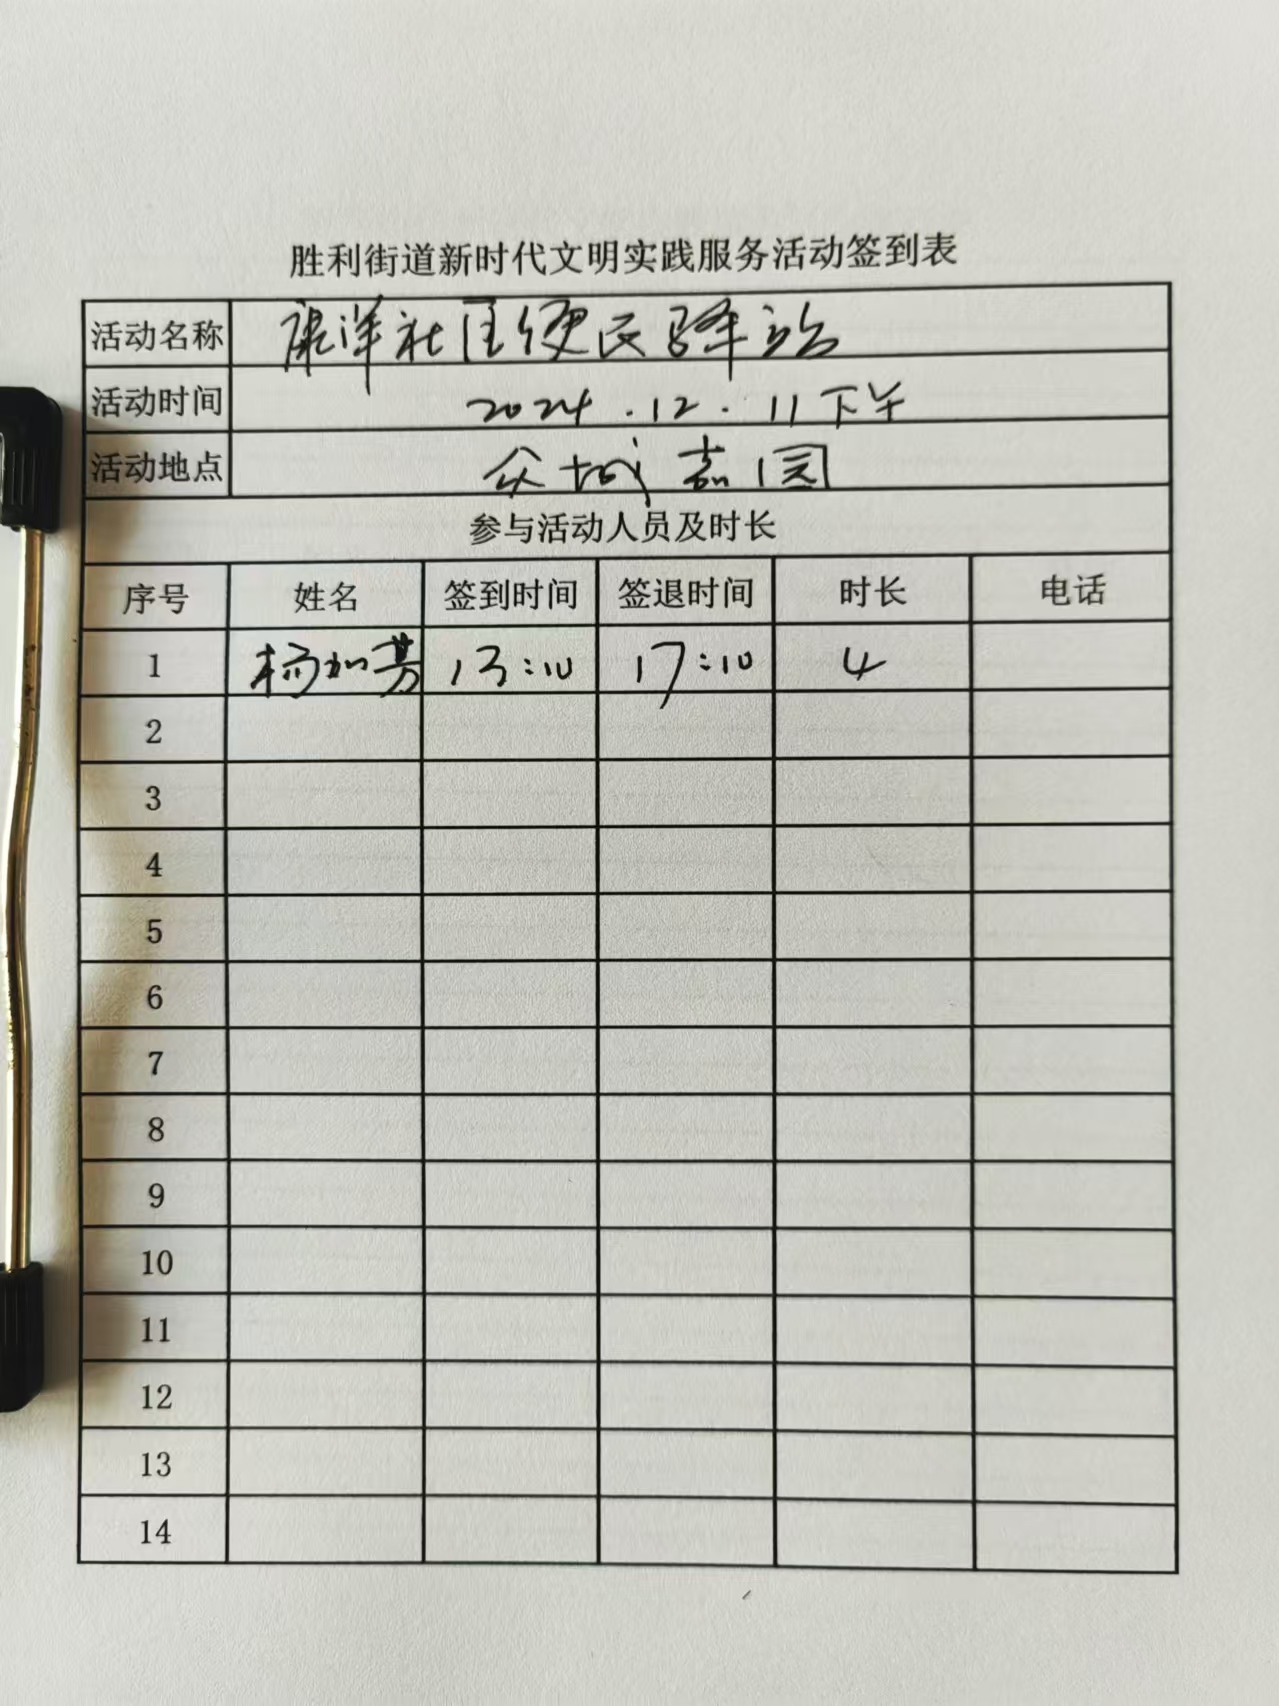 胜利街道新时代文明实践服务活动签到表
活动名称 康洋社区便民驿站
活动时间 2024.12.11下午
活动地点 众城嘉园
参与活动人员及时长
序号 姓名 签到时间 签退时间 时长 电话
1 杨加芳 13:10 17:10 4
2
3
4
5
6
7
8
9
10
11
12
13
14